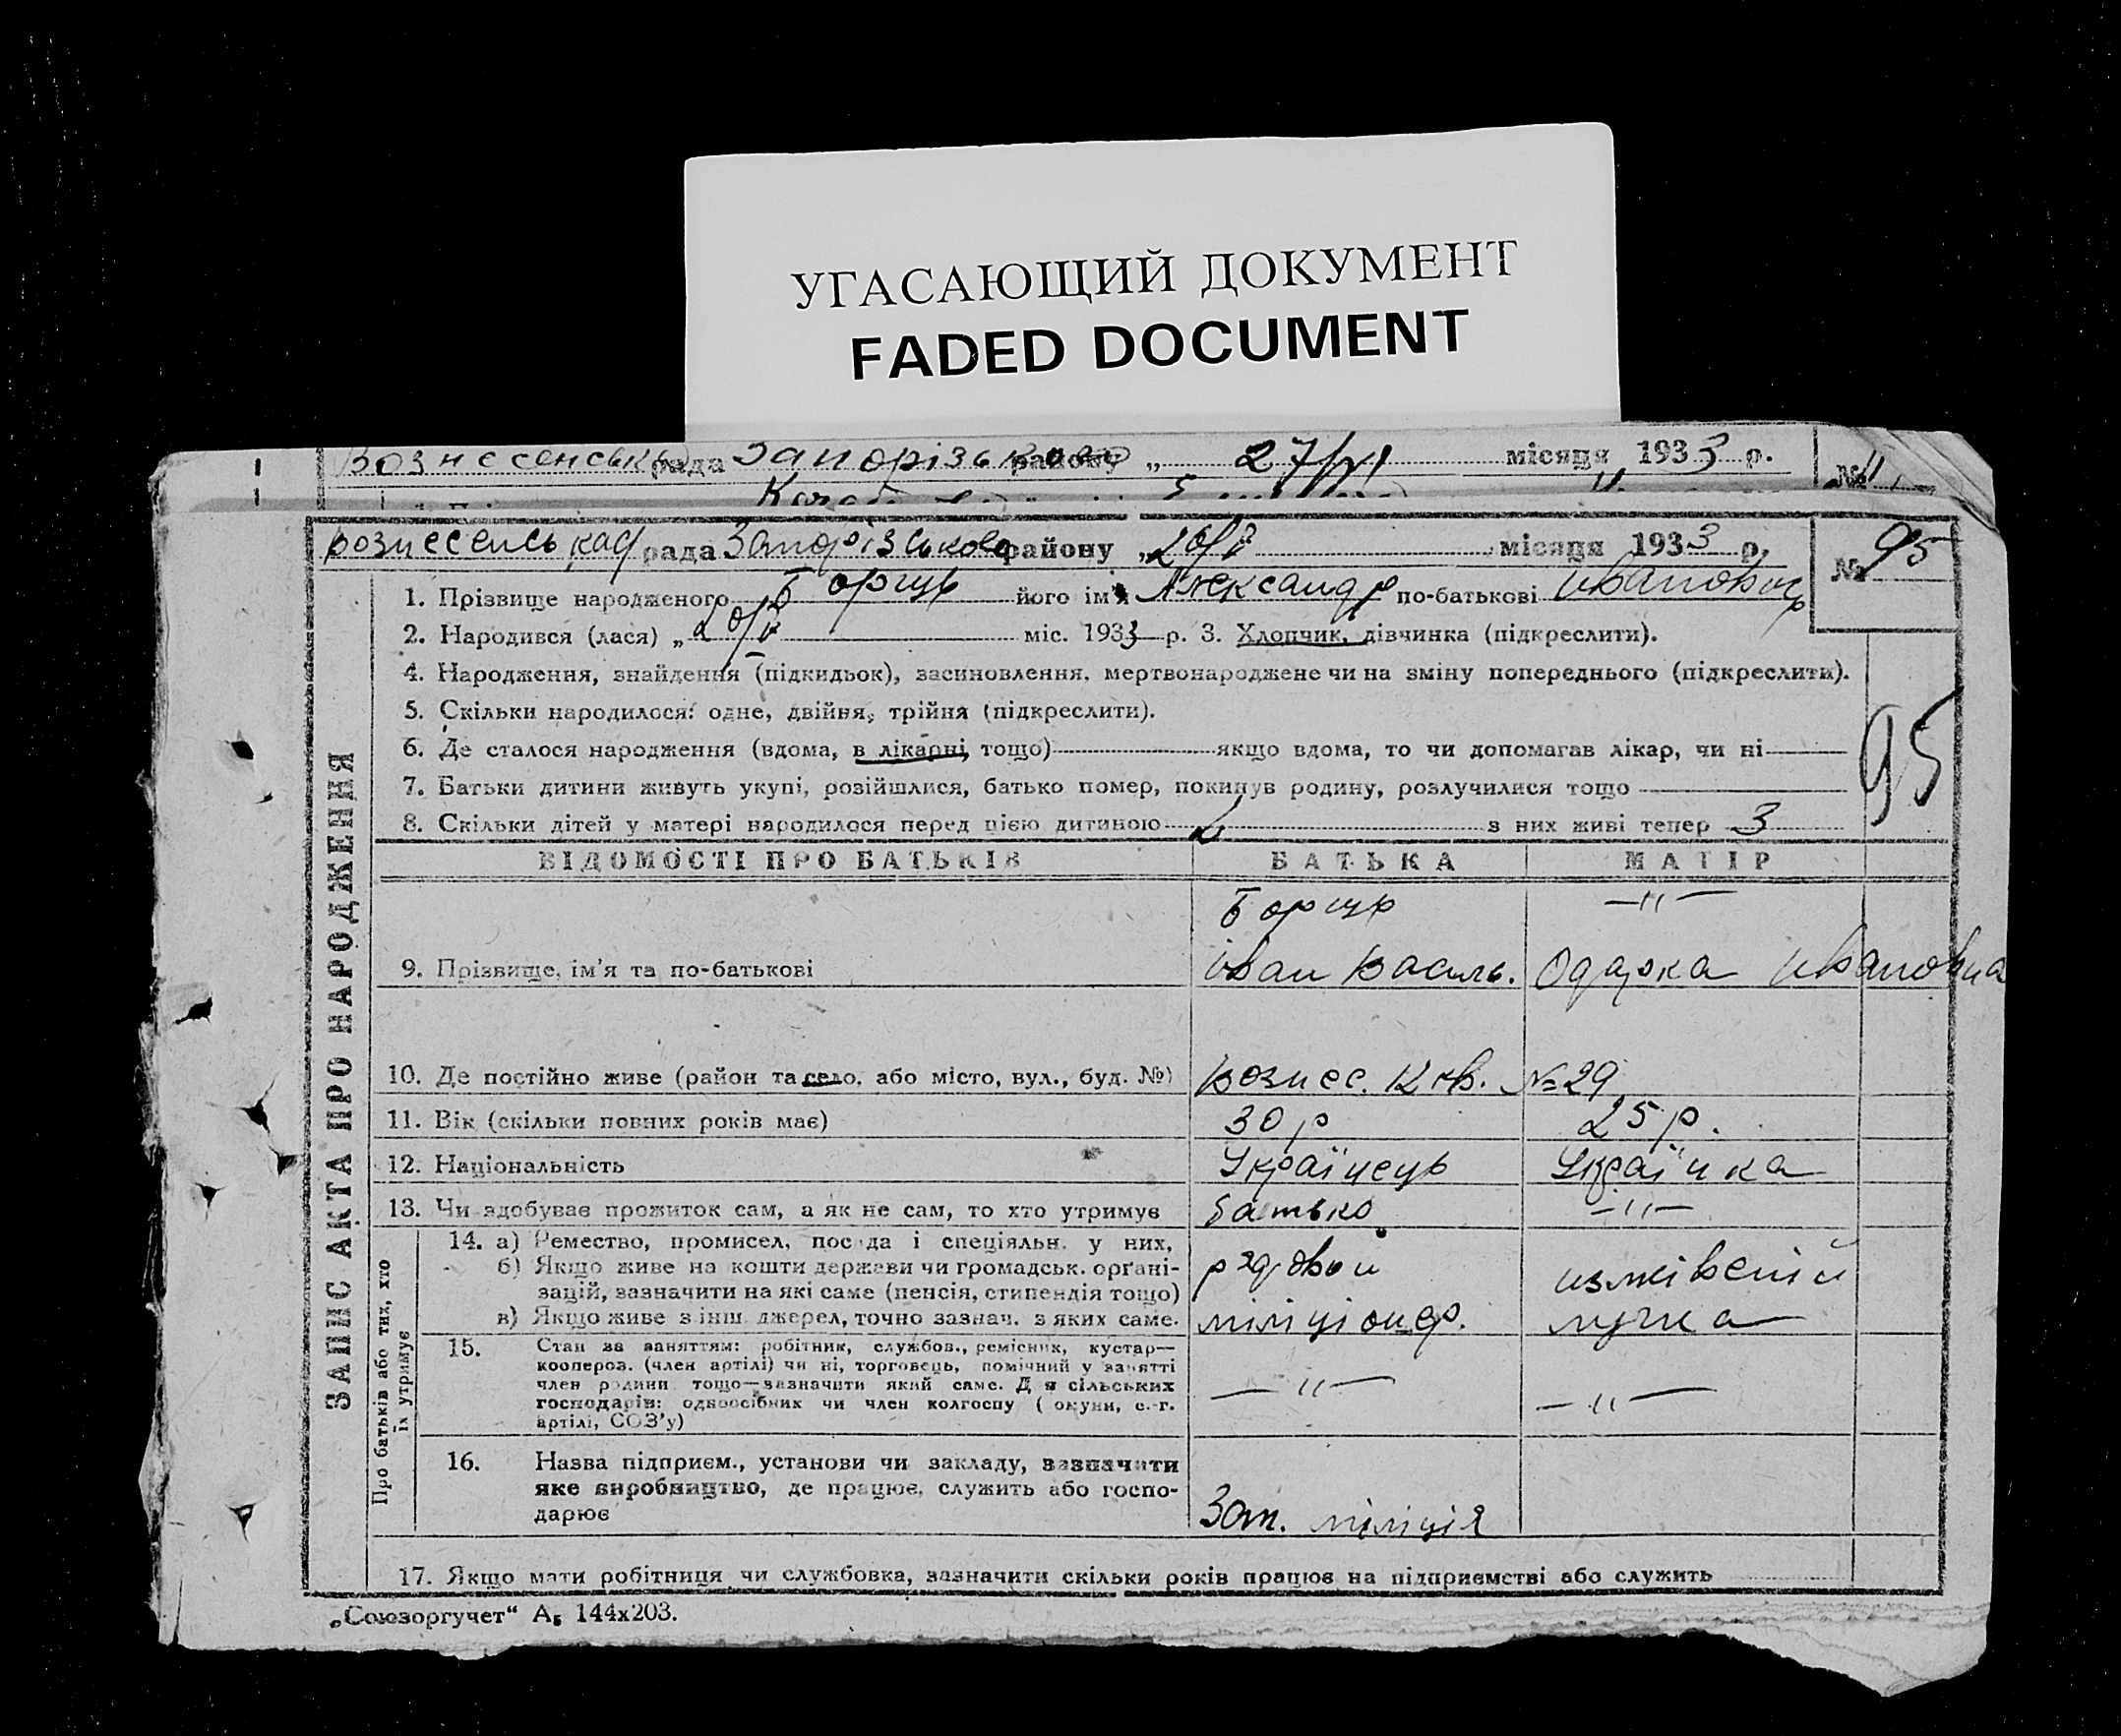 УГАСАЮЩИЙ ДОКУМЕНТ
FADED DOCUMENT
Вознесенська рада Запорізького району „ 27/VI місяця 1933 р. №
Вознесенськая рада Запорізького району „ місяця 1933 р. № 95
1. Прізвище народженого Борець його ім'я Александр по-батькові Иванович
2. Народився (лася) „ міс. 1933 р. 3. Хлопчик, дівчинка (підкреслити).
4. Народження, знайдення (підкидьок), засиновлення, мертвонароджене чи на зміну попереднього (підкреслити).
5. Скільки народилося: одне, двійня, трійня (підкреслити).
6. Де сталося народження (вдома, в лікарні, тощо) якщо вдома, то чи допомагав лікар, чи ні
95
7. Батьки дитини живуть укупі, розійшлися, батько помер, покинув родину, розлучилися тощо
8. Скільки дітей у матері народилося перед цією дитиною 2 з них живі тепер 3
ЗАПИС АКТА ПРО НАРОДЖЕННЯ
ВІДОМОСТІ ПРО БАТЬКІВ БАТЬКА МАТІР
Борець —"—
9. Прізвище, ім'я та по-батькові Іван Василь. Одарка Ивановна
10. Де постійно живе (район та село, або місто, вул., буд. №) Вознес. кв. №29
11. Вік (скільки повних років має) 30 р 25 р.
12. Національність Українець Українка
13. Чи здобуває прожиток сам, а як не сам, то хто утримує батько —"—
Про батьків або тих, хто їх утримує
14. а) Ремество, промисел, посада і спеціяльн. у них,
б) Якщо живе на кошти держави чи громадськ. органі- рядовой
зацій, зазначити на які саме (пенсія, стипендія тощо)
в) Якщо живе з інш. джерел, точно зазнач. з яких саме. міліціонер.
15. Стан за заняттям: робітник, службов., ремісник, кустар—
коопероз. (член артілі) чи ні, торговець, помічний у занятті
член родини тощо—зазначити який саме. Для сільських —"— —"—
господарів: одноосібник чи член колгоспу (комуни, с.-г.
артілі, СОЗ'у)
16. Назва підприєм., установи чи закладу, зазначити
яке виробництво, де працює, служить або госпо-
дарює Зап. міліція
17. Якщо мати робітниця чи службовка, зазначити скільки років працює на підприємстві або служить
„Союзоргучет“ А₅ 144х203.